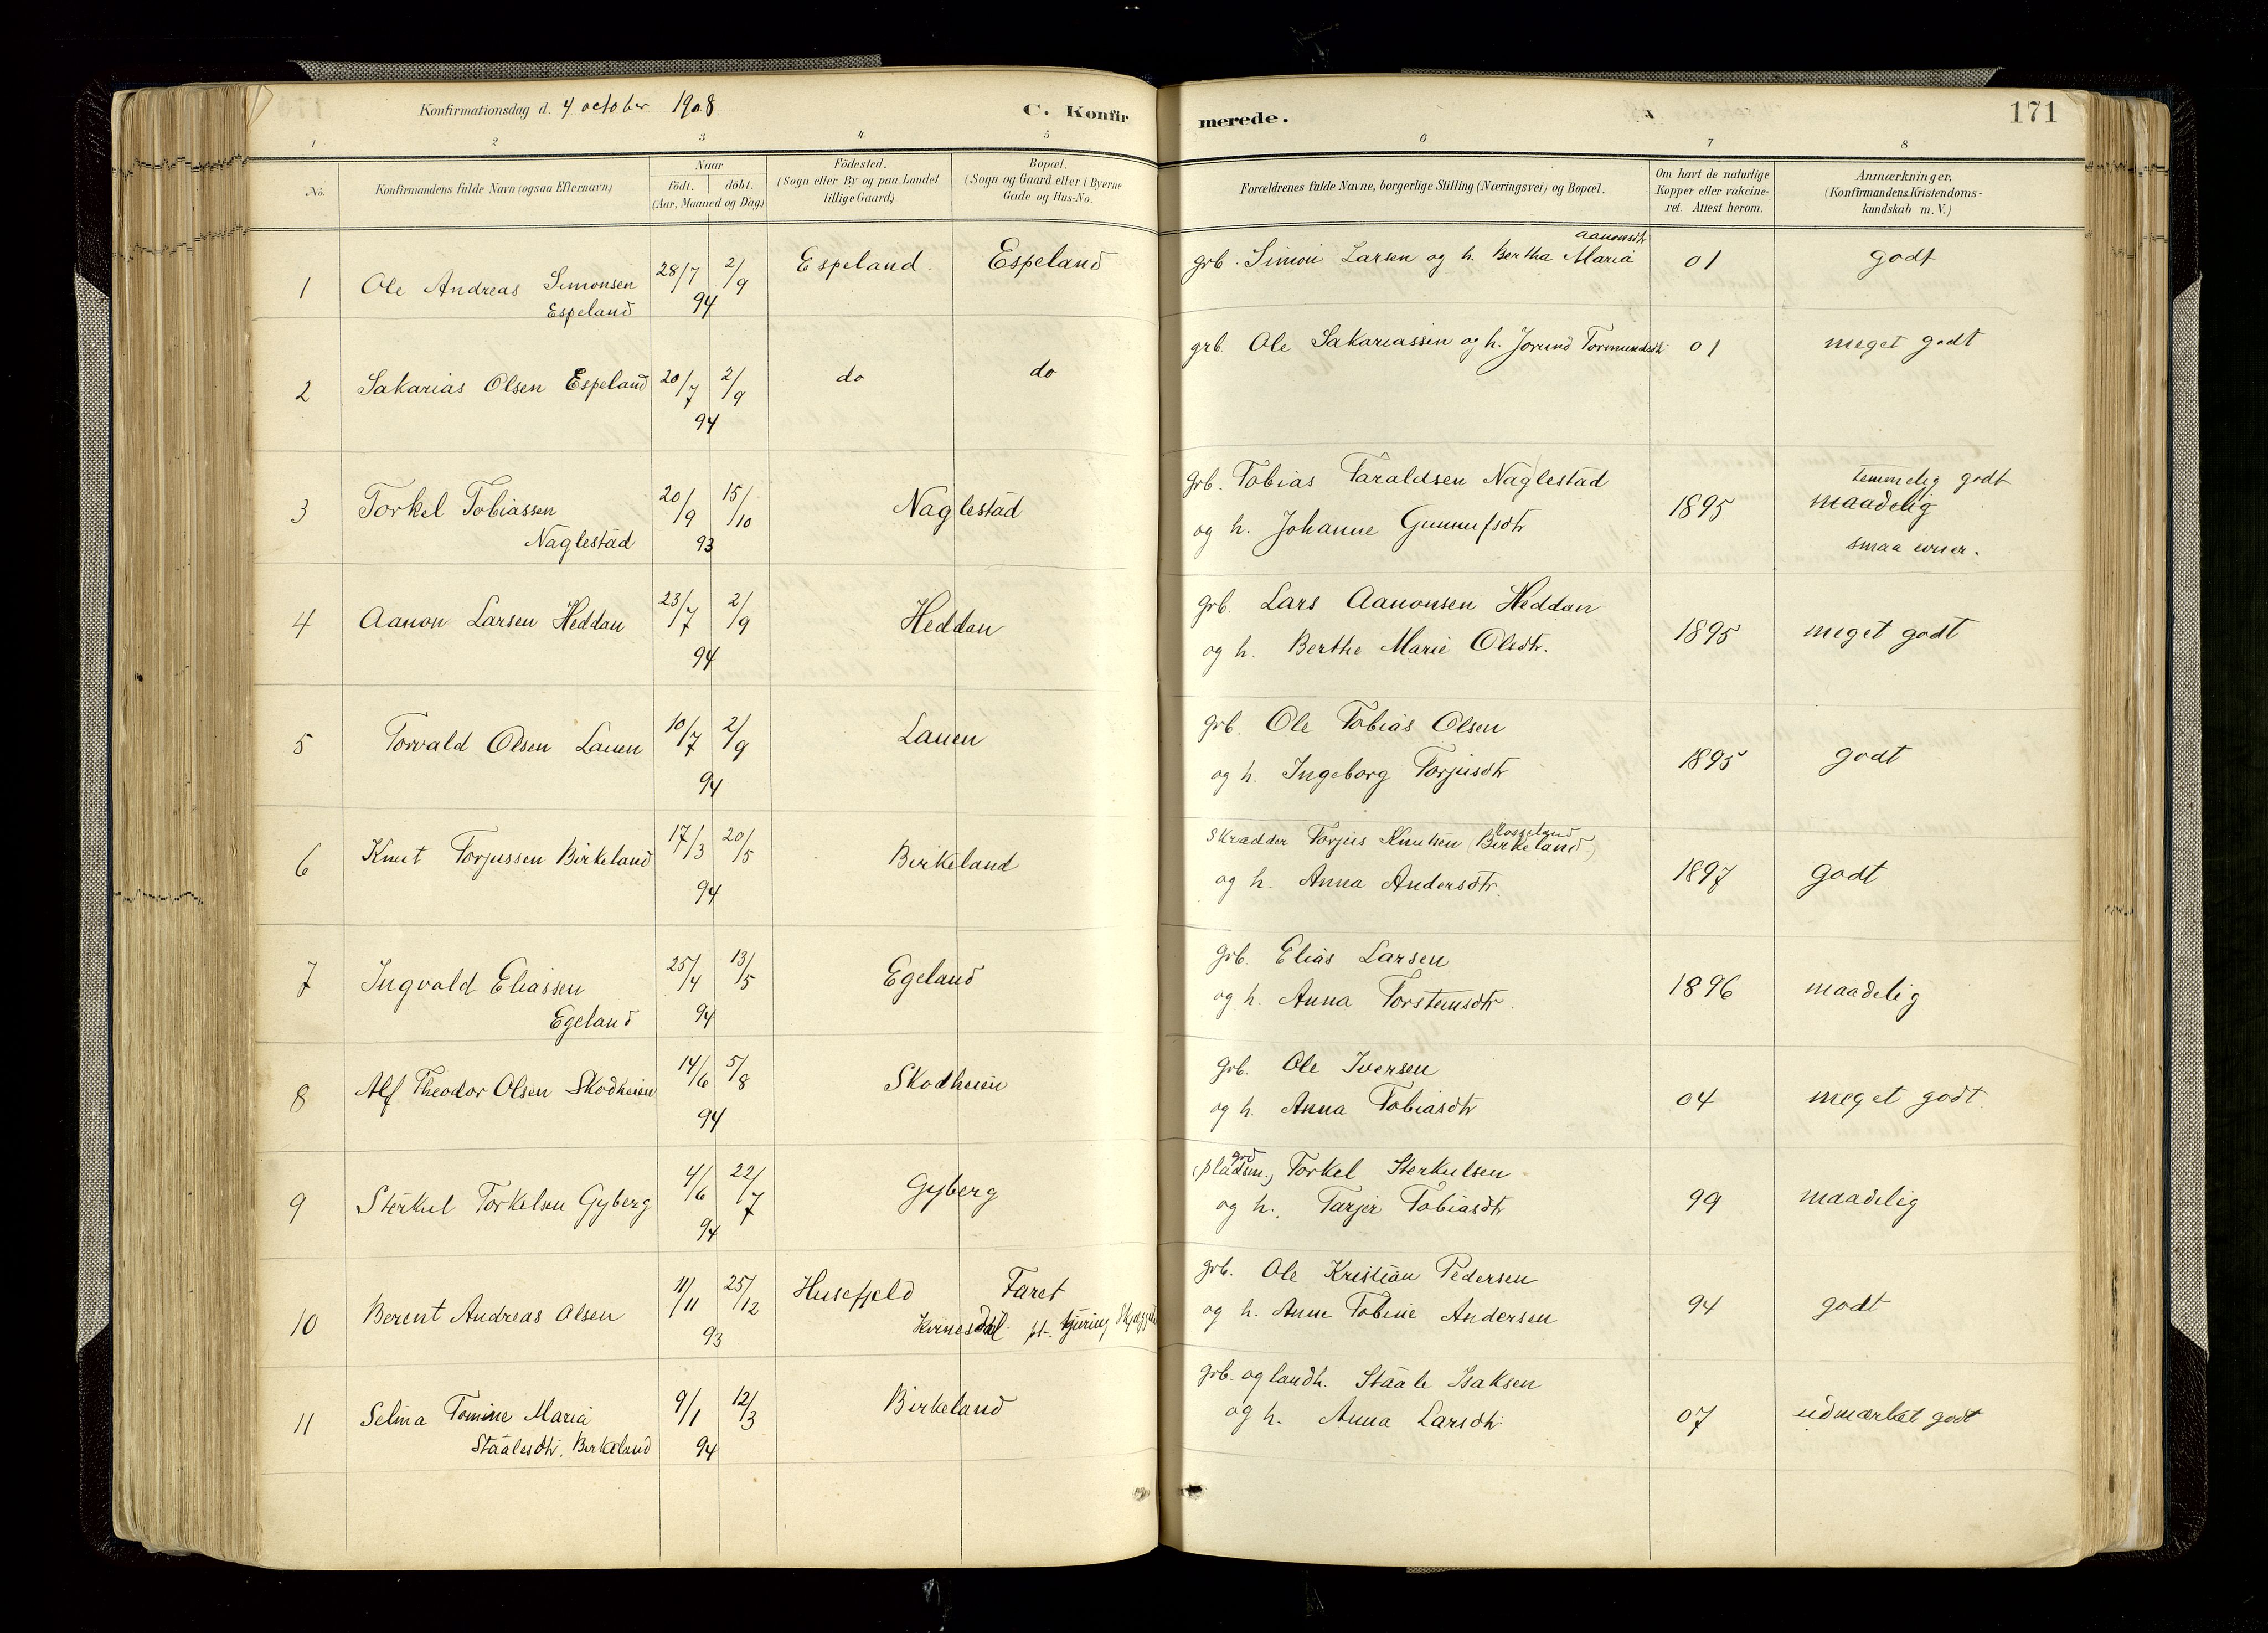 Konfirmationsdag d. 4 october 1908
C. Konfirmerede.
171
1 2 3 4 5 6 7 8
No. Konfirmandens fulde Navn (ogsaa Efternavn) Naar födt. döbt. (Aar, Maaned og Dag) Födested. (Sogn eller By og paa Landet tillige Gaard) Bopæl. (Sogn og Gaard eller i Byerne Gade og Hus-No. Forældrenes fulde Navne, borgerlige Stilling (Næringsvei) og Bopæl. Om havt de naturlige Kopper eller vakcineret. Attest herom. Anmærkninger, (Konfirmandens Kristendomskundskab m. V.)
1 Ole Andreas Simonsen Espeland 28/7 94 2/9 Espeland Espeland grb. Simon Larsen og h. Bertha Maria Aanonsdtr 01 godt
2 Sakarias Olsen Espeland 20/7 94 2/9 do do grb. Ole Sakariassen og h. Jorund Tormundsdtr 01 meget godt
3 Torkel Tobiassen Naglestad 20/9 93 15/10 Naglestad grb. Tobias Taraldsen Naglestad
og h. Johanne Gunnufsdtr 1895 temmelig godt
maadelig
smaa evner.
4 Aanon Larsen Heddan 23/7 94 2/9 Heddan grb. Lars Aanonsen Heddan
og h. Berthe Marie Olsdtr. 1895 meget godt
5 Torvald Olsen Lauen 10/7 94 2/9 Lauen grb. Ole Tobias Olsen
og h. Ingeborg Torjusdtr 1895 godt
6 Knut Torjussen Birkeland 17/3 94 20/5 Birkeland Skrædder Torjus Knutsen (Birkeland)
og h. Anna Andersdtr. 1897 godt
7 Ingvald Eliassen Egeland 25/4 94 13/5 Egeland grb. Elias Larsen
og h. Anna Torsteinsdtr. 1896 maadelig
8 Alf Theodor Olsen Skodheien 14/6 94 5/8 Skodheien grb. Ole Iversen
og h. Anna Tobiasdtr 04 meget godt.
9 Sterkul Torkelsen Gyberg 4/6 94 22/7 Gyberg (pladsm.) grd Torkel Sterkulsen
og h. Tarjer Tobiasdtr 99 maadelig
10 Berent Andreas Olsen 11/11 93 25/12 Husefjeld Faret
Kvinesdal. pt. grb. Ole Kristian Pedersen
og h. Anne Tobine Andersen 94 godt
11 Selma Tomine Maria
Staalesdtr. Birkeland 9/1 94 12/3 Birkeland grb. og landh. Staale Isaksen
og h. Anna Larsdtr 07 udmærket godt